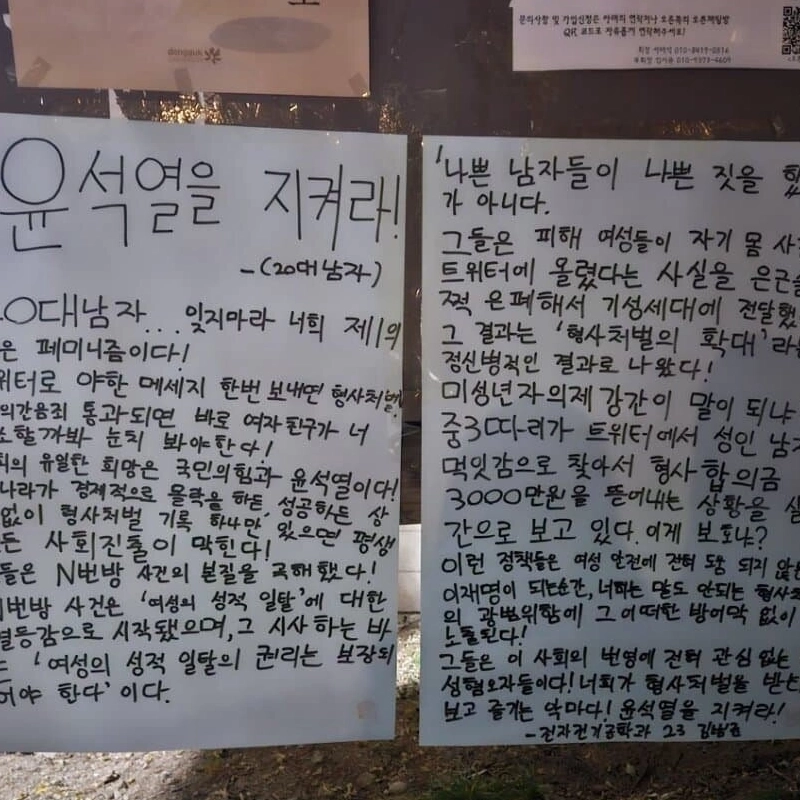 dongguk
문의사항 및 가입신청은 아래의 연락처나 오른쪽의 오픈채팅방
QR 코드로 자유롭게 연락해주세요!
010-8419-0816
부회장 010-9373-4609
윤석열을 지켜라!
-(20대남자)
20대남자... 잊지마라 너희 제1의
은 페미니즘이다!
위터로 야한 메세지 한번 보내면 형사처벌
의간음죄 통과되면 바로 여자친구가 너
소할까봐 눈치 봐야한다!
희의 유일한 희망은 국민의힘과 윤석열이다!
나라가 경제적으로 몰락을 하든, 성공하든 상
없이 형사처벌 기록 하나만 있으면 평생
든 사회진출이 막힌다!
들은 N번방 사건의 본질을 곡해했다!
번방 사건은 '여성의 성적 일탈'에 대한
열등감으로 시작됐으며, 그 시사하는 바
는 '여성의 성적 일탈의 권리는 보장되
어야 한다'이다.
'나쁜 남자들이 나쁜 짓을 했
가 아니다.
그들은 피해 여성들이 자기 몸 사
트위터에 올렸다는 사실을 은근슬
쩍 은폐해서 기성세대에 전달했
그 결과는 '형사처벌의 확대'라는
정신병적인 결과로 나왔다!
미성년자의제강간이 말이 되냐
중3따리가 트위터에서 성인 남자
먹잇감으로 찾아서 형사 합의금
3000만원을 뜯어내는 상황을 실
간으로 보고 있다. 이게 보호냐?
이런 정책들은 여성 안전에 전혀 도움 되지 않는
이재명이 되는순간, 너희는 말도 안되는 형사처
의 광범위함에 그 어떠한 방어막 없이
노출된다!
그들은 이 사회의 번영에 전혀 관심 없는
성혐오자들이다! 너희가 형사처벌을 받는
보고 즐기는 악마다! 윤석열을 지켜라!
-전자전기공학과 23